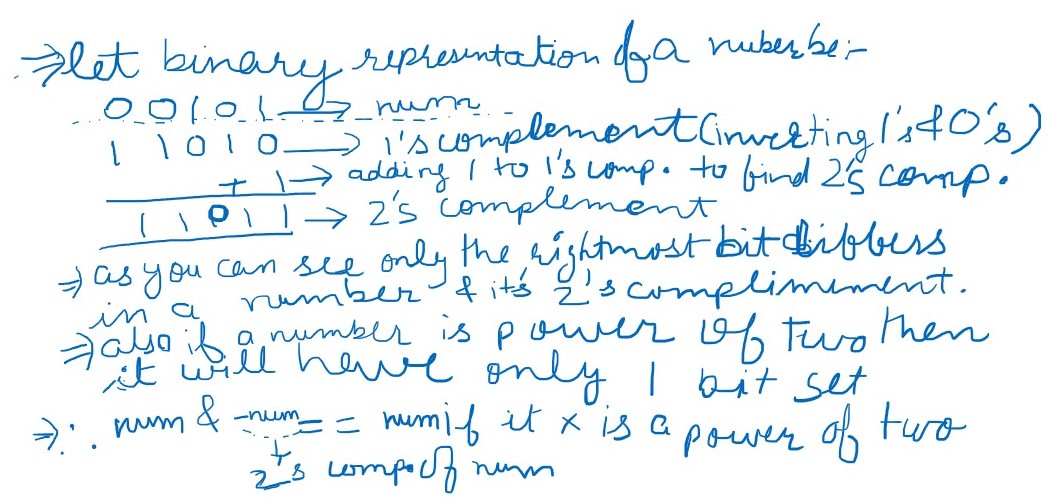 ⇒let binary representation of a nuber be:-
00101 → num
11010 → 1's complement (inverting 1's & 0's)
+ 1 → adding 1 to 1's comp. to find 2's comp.
11011 → 2's complement
⇒ as you can see only the rightmost bit differs
in a number & it's 2's complimiment.
⇒ also if a number is power of two then
it will have only 1 bit set
⇒ ∴ num & -num == num if it x is a power of two
2's comp. of num